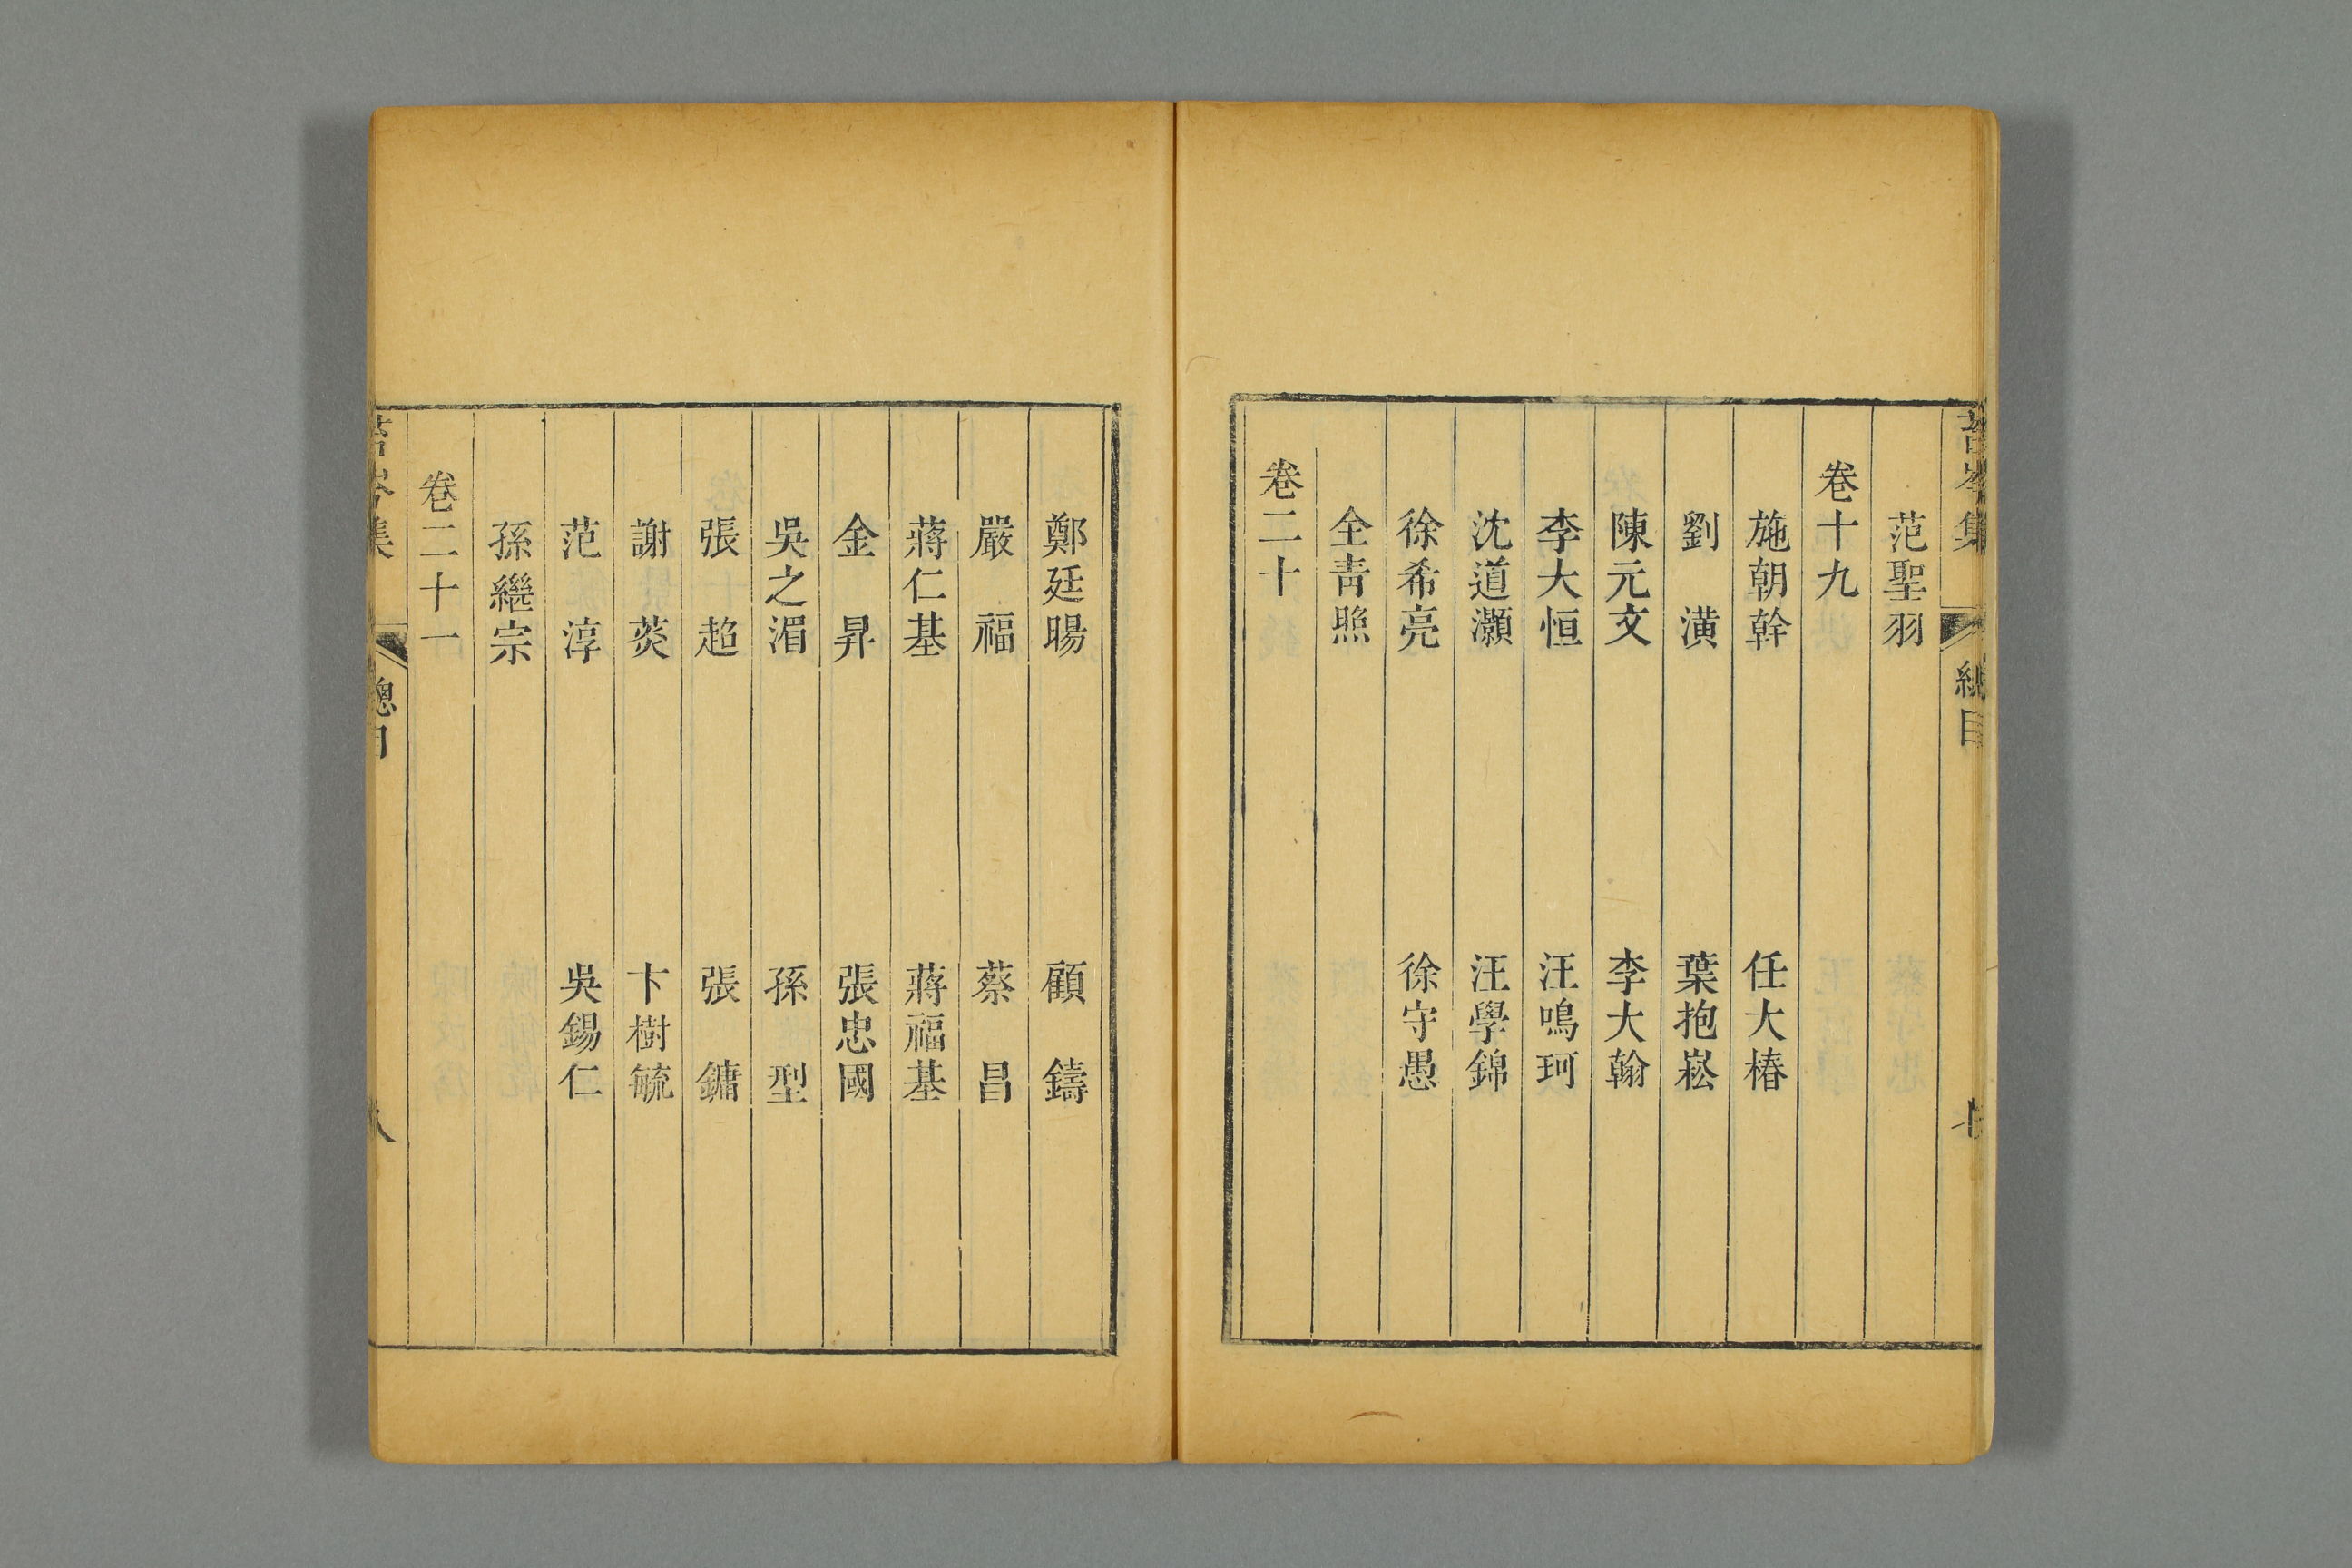 苔岑集 總目 七
范聖羽
卷十九
施朝幹 任大椿
劉潢 葉抱崧
陳元文 李大翰
李大恒 汪鳴珂
沈道灝 汪學錦
徐希亮 徐守愚
全青照
卷二十
鄭廷暘 顧鑄
嚴福 蔡昌
蔣仁基 蔣福基
金昇 張忠國
吳之湄 孫型
張超 張鏞
謝葵 卞樹毓
范淳 吳錫仁
孫繼宗
卷二十一
苔岑集 總目 八